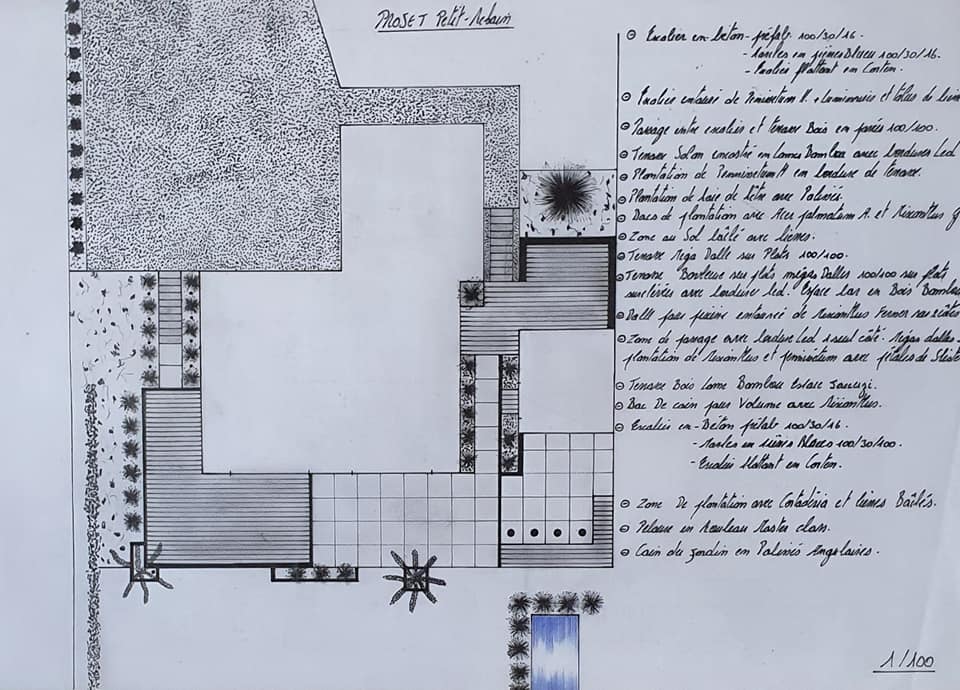 PROJET Petit-
Escalier en béton préfab 100/30/16.
- Marches en pierres Bleues 100/30/16.
- Escalier flottant en Corten.
Escalier entouré de Pennisetum H. + luminaires et
Passage entre escalier et terrasse Bois en pavés 100/100.
Terrasse Salon encastré en Lames Bambou avec bordures Led
Plantation de Pennisetum H en bordure de terrasse.
Plantation de haie de hêtre avec Palissés.
Bacs de plantation avec Acer palmatum A. et Mixanthus
Zone au Sol bâché avec
Terrasse Mega Dalle sur Plots 100/100.
Terrasse sur plots mégas Dalles 100/100 sur plots
surélevés avec bordure led. Espace bar en Bois Bambou
Dalle pour entourée de Mixanthus
Zone de passage avec bordure Led 1 seul côté. Mégas dalles
plantation de Mixanthus et pennisetum avec
Terrasse Bois Lame Bambou Espace Jacuzzi.
Bac De coin pour Volume avec Mixanthus.
Escalier en Béton préfab 100/30/16.
- Marches en pierres Bleues 100/30/100.
- Escalier flottant en Corten.
Zone De plantation avec Cortadéria et Bâchés.
Pelouse en Rouleau Master class.
Coin du jardin en Palissés Angulaires.
1/100